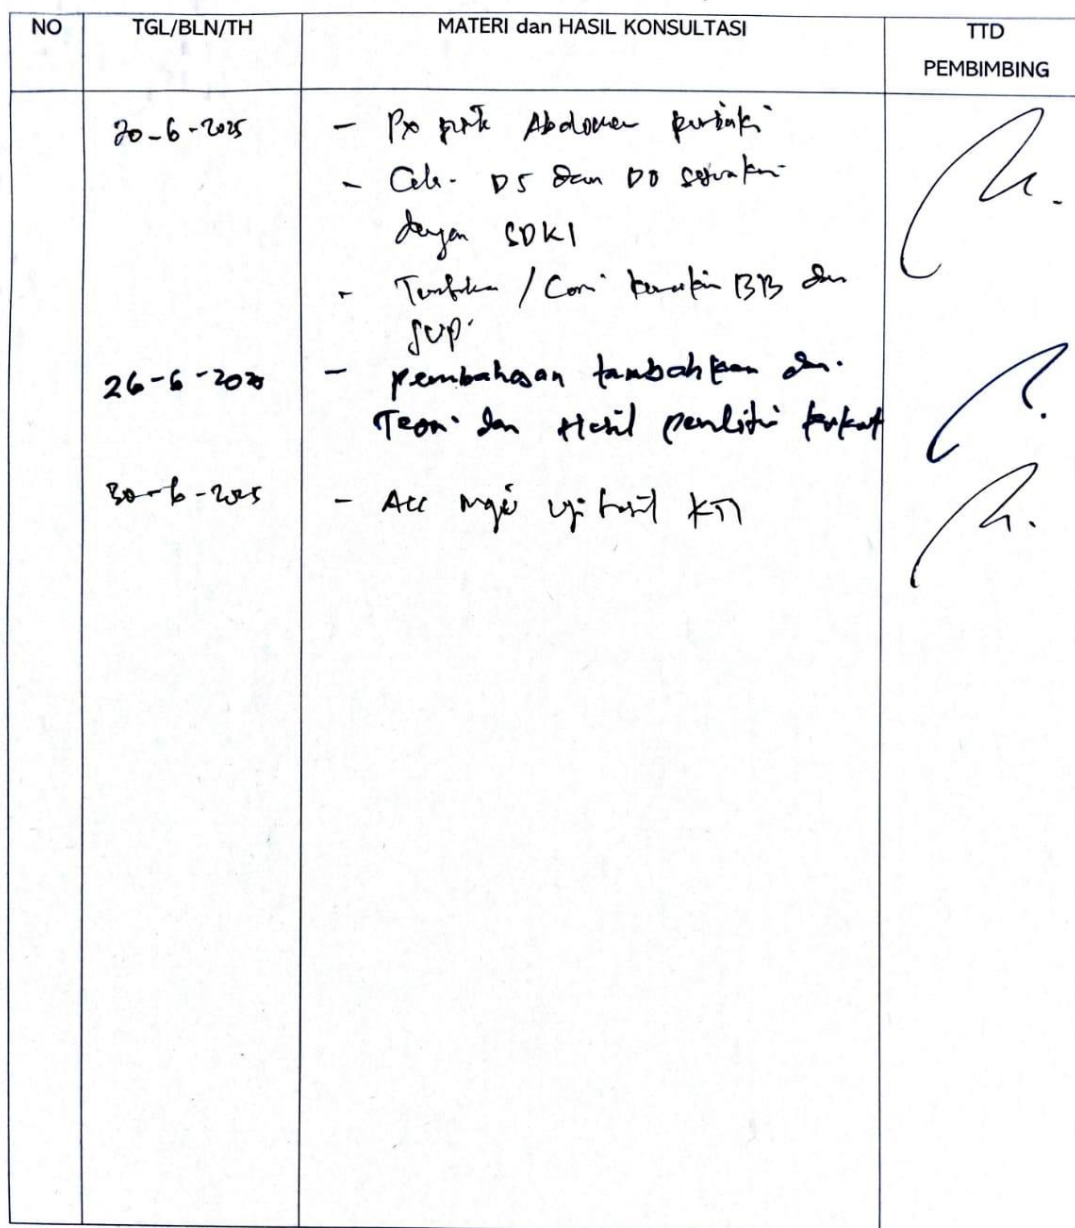 NO TGL/BLN/TH MATERI dan HASIL KONSULTASI TTD
PEMBIMBING
20-6-2025 - Px fisik Abdomen perbaiki
- Cek DS dan DO sesuaikan
dengan SDKI
- / Cari BB dan
26-6-2025 - pembahasan tambahkan dn.
Teori dan Hasil peneliti terkait
30-6-2025 - Acc Uji hasil KTI